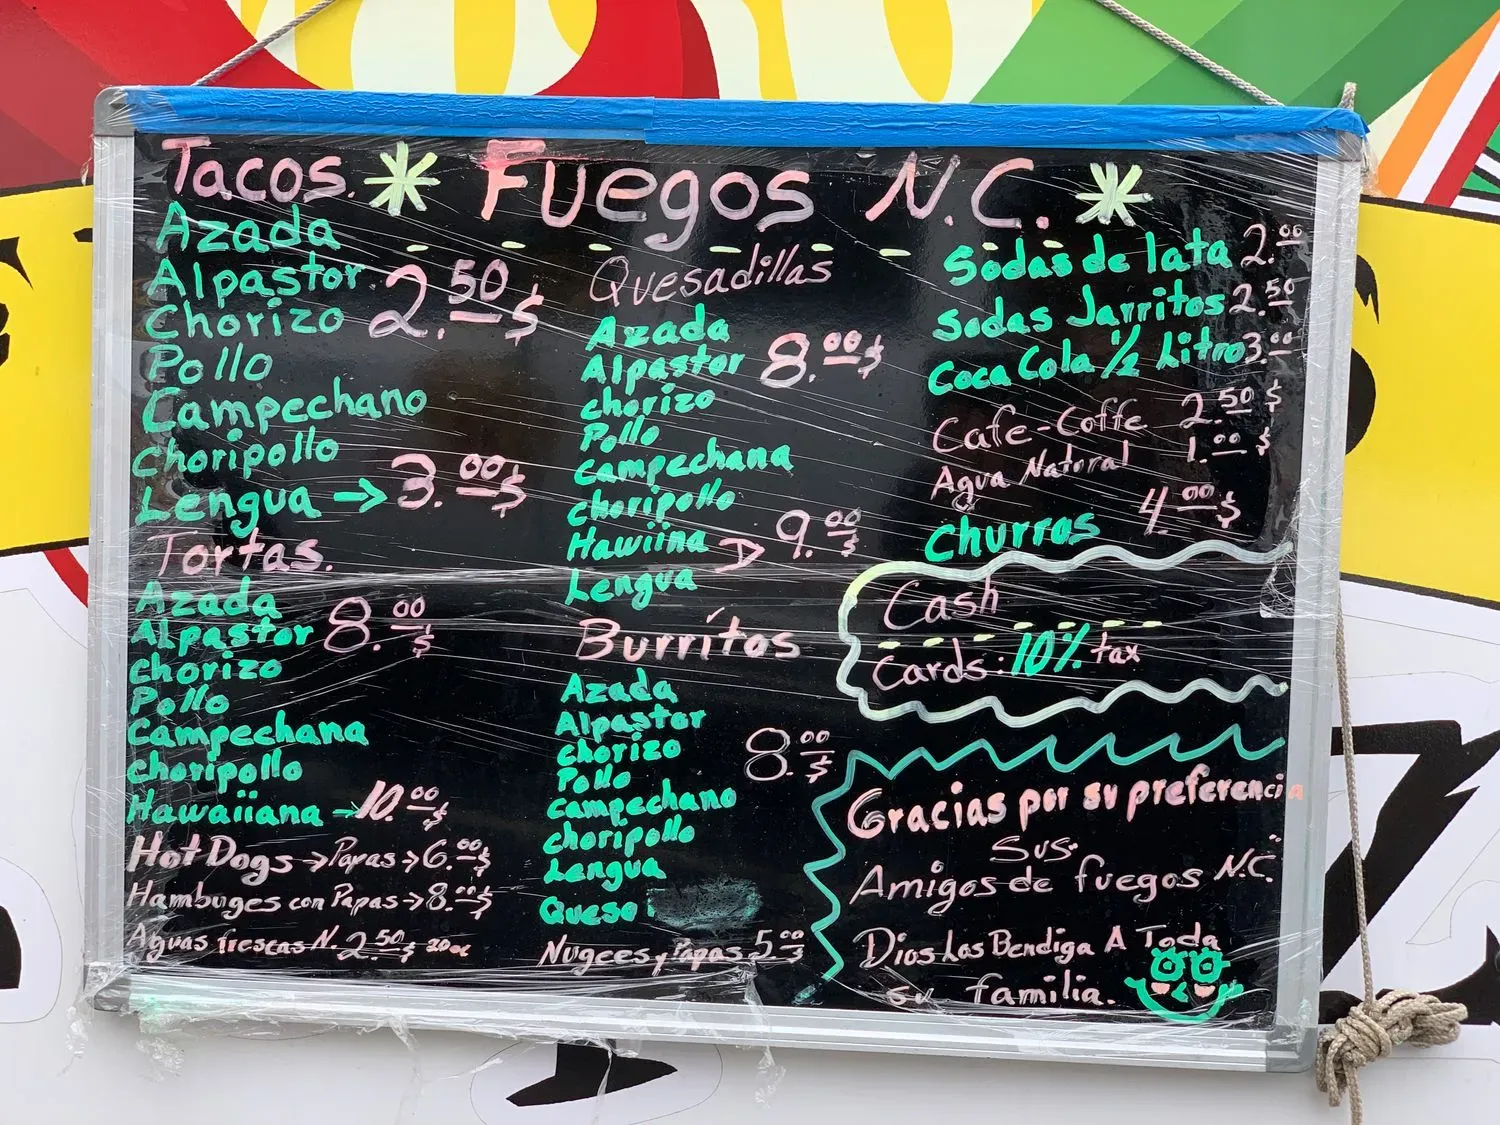 Tacos. * Fuegos N.C. *
Azada
Alpastor 2.50$
Chorizo
Pollo
Campechano
Choripollo
Lengua → 3.00$
Tortas.
Azada
Alpastor 8.00$
Chorizo
Pollo
Campechana
Choripollo
Hawaiiana → 10.00$
Hot Dogs → Papas → 6.00$
Hambuges con Papas → 8.00$
Aguas frescas N. 2.50$
Quesadillas
Azada
Alpastor 8.00$
chorizo
Pollo
campechana
choripollo
Hawiina
Lengua 9.00$
Burritos
Azada
Alpastor
chorizo 8.00$
Pollo
campechano
choripollo
Lengua
Queso
Nugees y Papas 5.00$
Sodas de lata 2.00
Sodas Jarritos 2.50
Coca Cola 1/2 Litro 3.00
Cafe-Coffe 2.50$
Agua Natural 1.00$
Churros 4.00$
Cash
Cards: 10% tax
Gracias por su preferencia
Sus
Amigos de fuegos N.C.
Dios Los Bendiga A Toda
su familia.